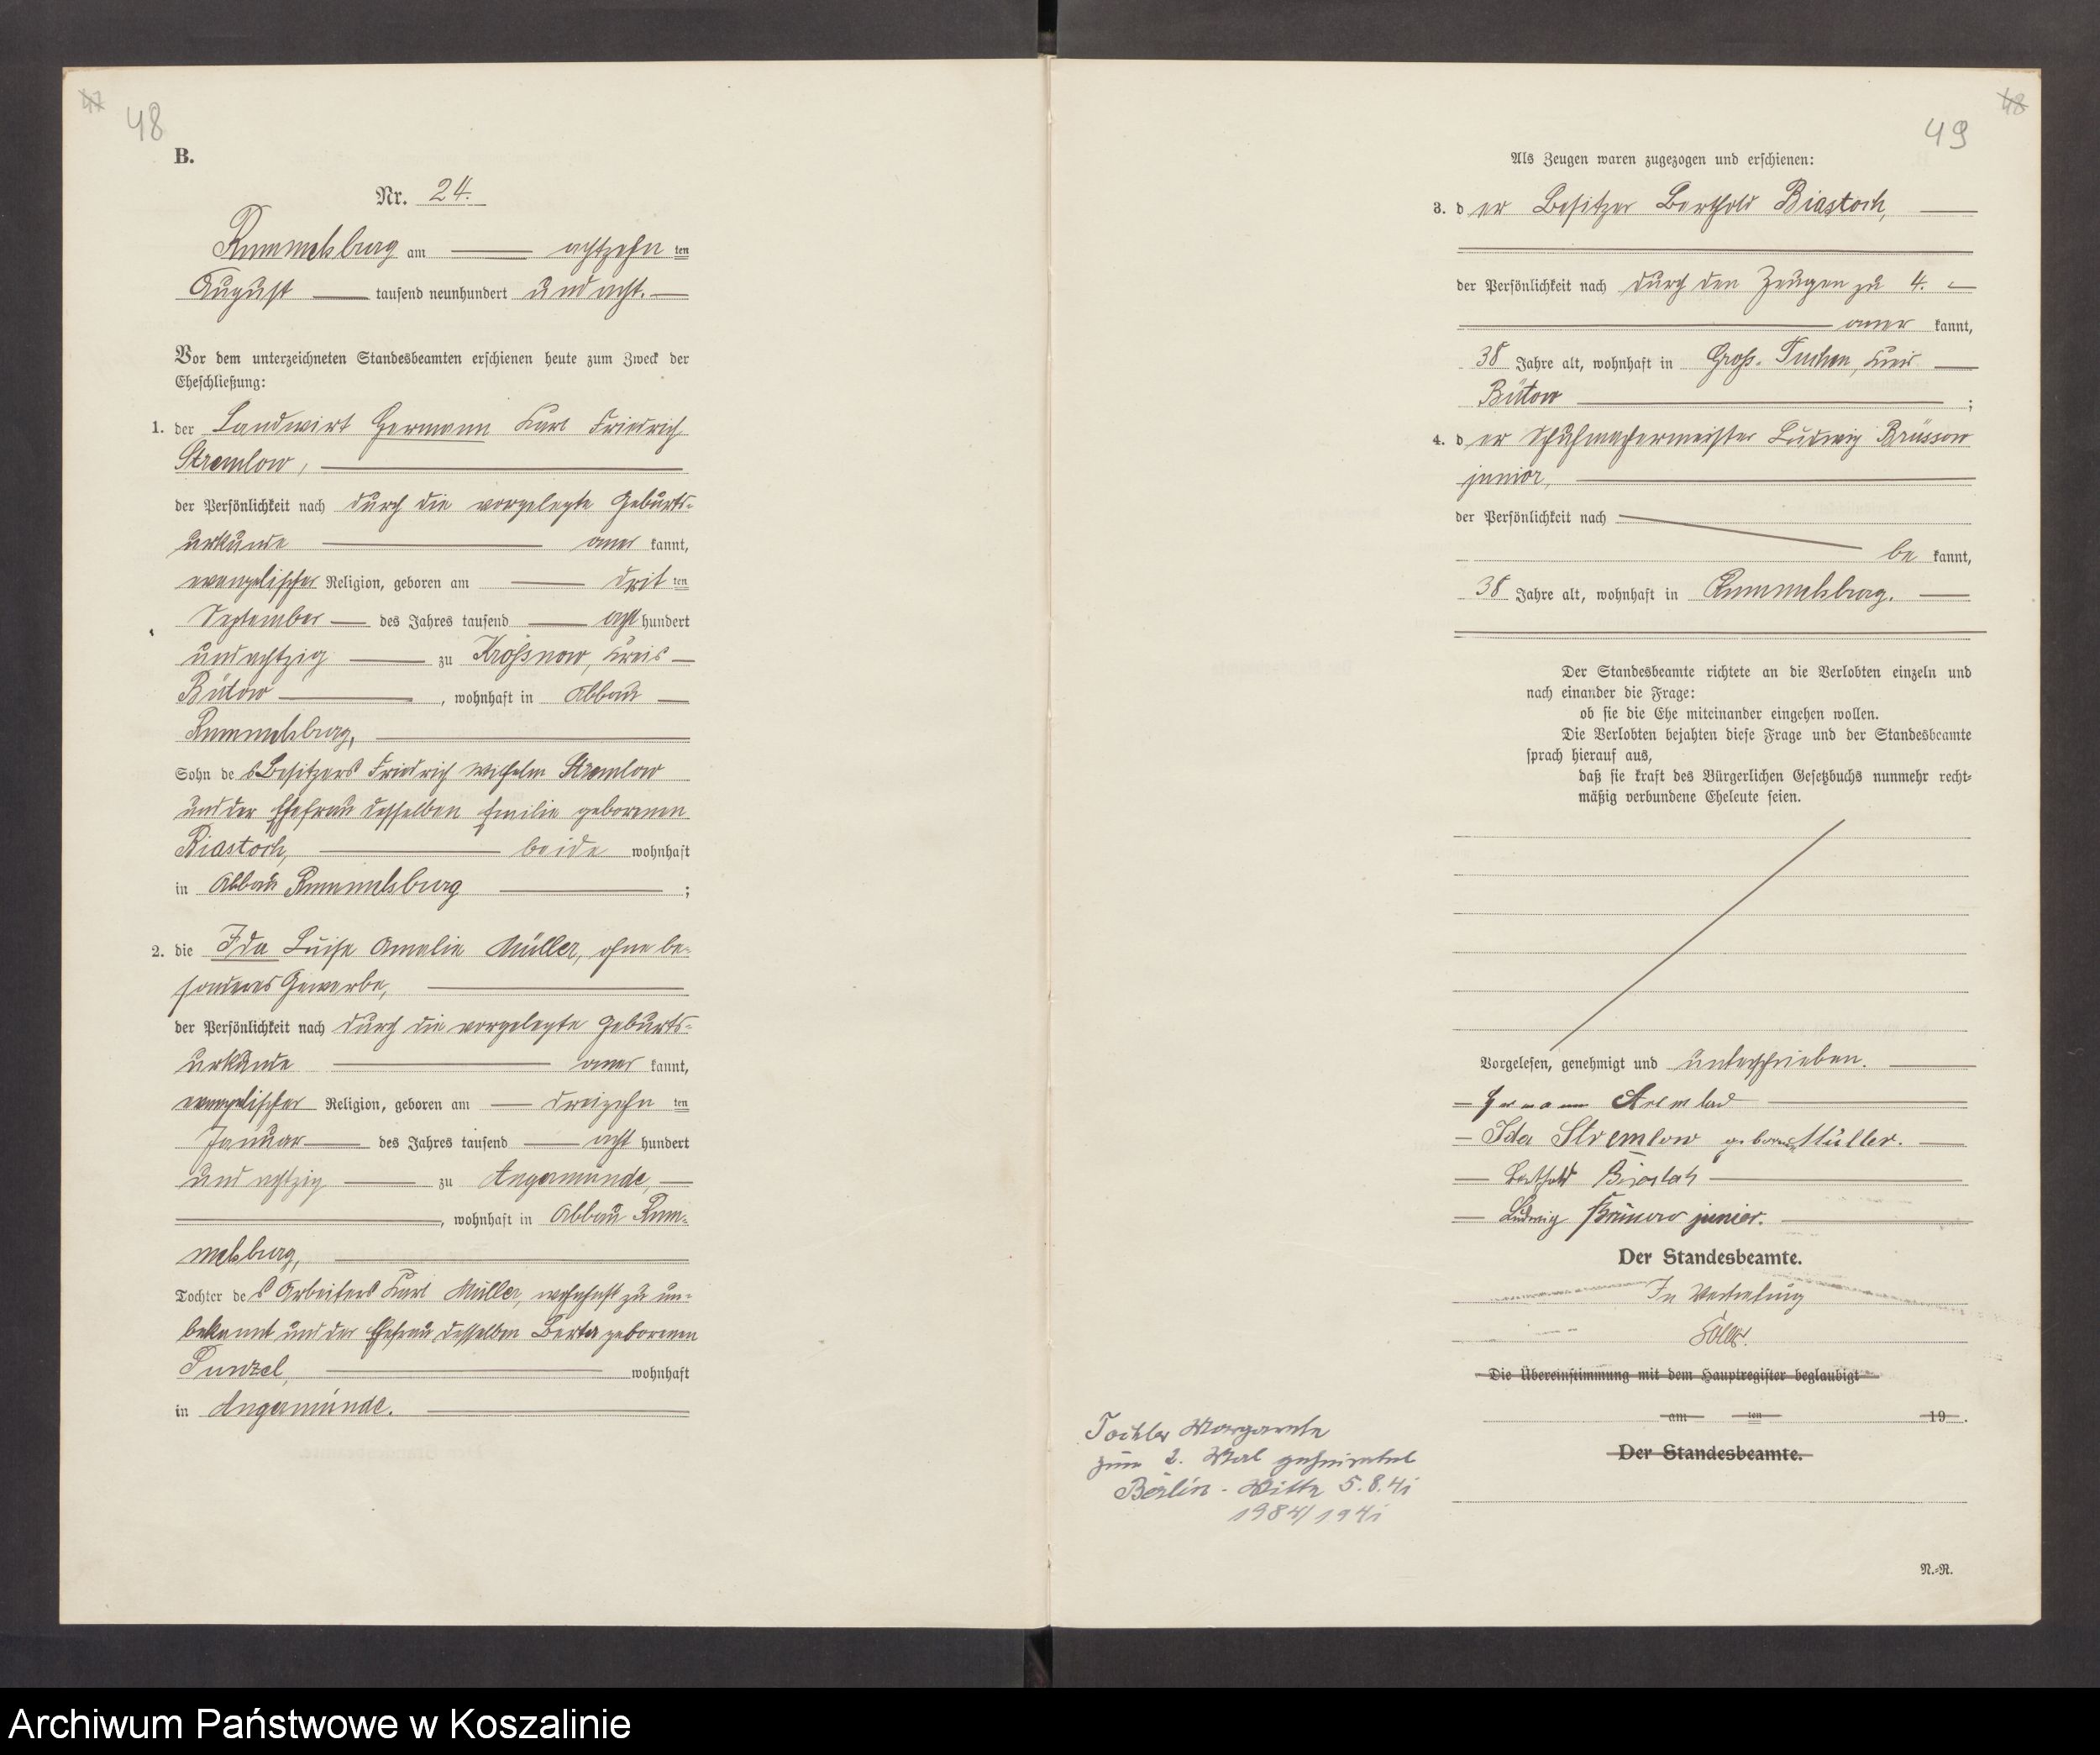 47
48
B.
Nr. 24.
Rummelsburg am achtzehn ten
August tausend neunhundert und acht.
Vor dem unterzeichneten Standesbeamten erschienen heute zum Zweck der
Eheschließung:
1. der Landwirt Hermann Karl Friedrich
Stremlow,
der Persönlichkeit nach durch die vorgelegte Geburts-
urkunde aner kannt,
evangelischer Religion, geboren am drit ten
September des Jahres tausend acht hundert
und achtzig zu Kroßnow, Kreis
Bütow, wohnhaft in Abbau
Rummelsburg,
Sohn des Besitzers Friedrich Wilhelm Stremlow
und der Ehefrau desselben Emilie geborenen
Biastoch, beide wohnhaft
in Abbau Rummelsburg ;
2. die Ida Luise Amalie Müller, ohne be-
sonderes Gewerbe,
der Persönlichkeit nach durch die vorgelegte Geburts-
urkunde aner kannt,
evangelischer Religion, geboren am dreizehn ten
Januar des Jahres tausend acht hundert
und achtzig zu Angermünde,
, wohnhaft in Abbau Rum-
melsburg,
Tochter des Arbeiters Karl Müller, wohnhaft zu un-
bekannt und der Ehefrau desselben Berta geborenen
Punzel, wohnhaft
in Angermünde.
48
49
Als Zeugen waren zugezogen und erschienen:
3. der Besitzer Berthold Biastoch,
der Persönlichkeit nach durch den Zeugen zu 4.
aner kannt,
38 Jahre alt, wohnhaft in Groß-Tuchen, Kreis
Bütow ;
4. der Schuhmachermeister Ludwig Brüssow
junior,
der Persönlichkeit nach
be kannt,
38 Jahre alt, wohnhaft in Rummelsburg.
Der Standesbeamte richtete an die Verlobten einzeln und
nach einander die Frage:
ob sie die Ehe miteinander eingehen wollen.
Die Verlobten bejahten diese Frage und der Standesbeamte
sprach hierauf aus,
daß sie kraft des Bürgerlichen Gesetzbuchs nunmehr recht-
mäßig verbundene Eheleute seien.
Vorgelesen, genehmigt und unterschrieben.
Hermann Stremlow
Ida Stremlow geborne Müller.
Berthold Biastoch
Ludwig Brüssow junior.
Der Standesbeamte.
In Vertretung
Die Übereinstimmung mit dem Hauptregister beglaubigt
am ten 19 .
Der Standesbeamte.
Tochter Margarete
zum 2. Mal geheiratet
Berlin-Mitte 5.8.41
1984/1941
N.-R.
Archiwum Państwowe w Koszalinie